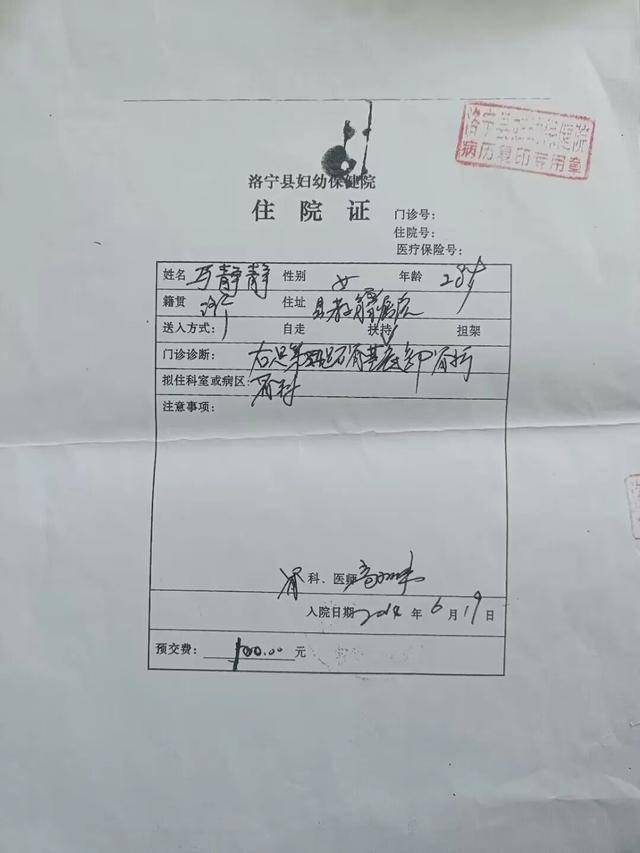 洛宁县妇幼保健院
病历复印专用章
洛宁县妇幼保健院
住院证
门诊号:
住院号:
医疗保险号:
姓名 马静静 性别 女 年龄 28岁
籍贯 住址 县
送入方式: 自走 扶持 担架
门诊诊断: 右足第 跖骨基底部骨折
拟住科室或病区: 骨科
注意事项:
骨 科、医师
入院日期 2014 年 6 月 19 日
预交费: 100.00 元